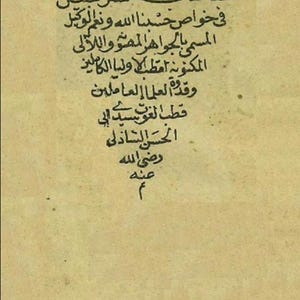 في خواص حسبنا الله ونعم الوكيل
المسمى بالجواهر المصونه واللآلي
المكنونه لقطب الاوليا الكاملين
وقدوة العلماء العاملين
قطب الغوث سيدي ابي
الحسن الشاذلي
رضي الله
عنه
م